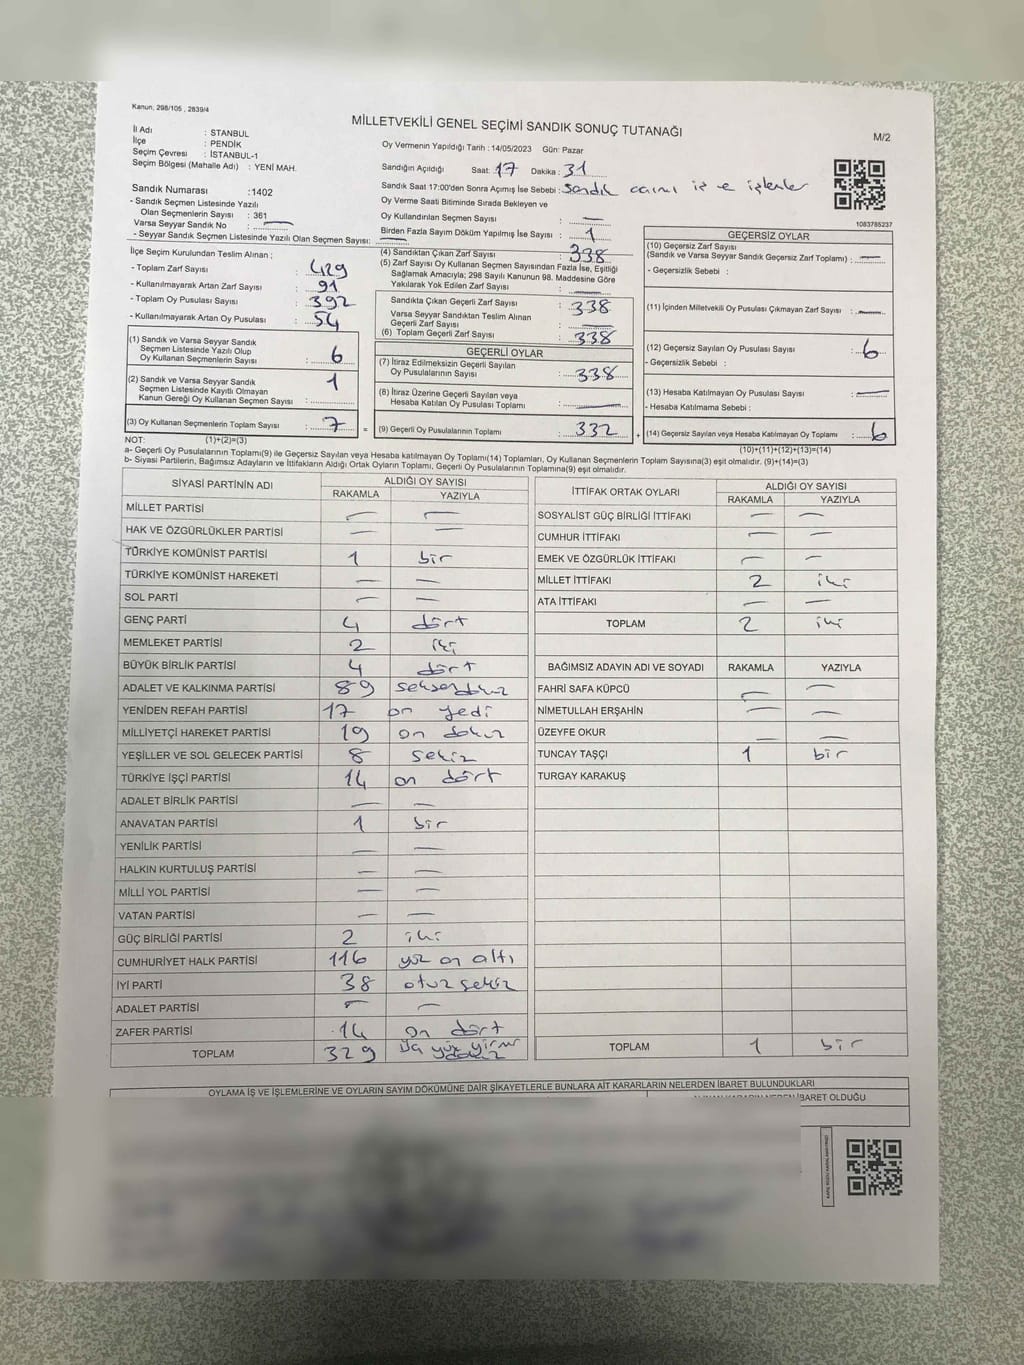 Kanun; 298/105 , 2839/4
MİLLETVEKİLİ GENEL SEÇİMİ SANDIK SONUÇ TUTANAĞI
M/2
İl Adı : STANBUL
İlçe : PENDİK
Seçim Çevresi : İSTANBUL-1
Seçim Bölgesi (Mahalle Adı) : YENİ MAH.
Oy Vermenin Yapıldığı Tarih : 14/05/2023 Gün: Pazar
Sandığın Açıldığı Saat: 17 Dakika : 31
Sandık Saat 17:00'den Sonra Açımış İse Sebebi : sandık iş ve işlemler
Oy Verme Saati Bitiminde Sırada Bekleyen ve
Oy Kullandırılan Seçmen Sayısı : —
Birden Fazla Sayım Döküm Yapılmış İse Sayısı : 1
1083785237
Sandık Numarası : 1402
- Sandık Seçmen Listesinde Yazılı
Olan Seçmenlerin Sayısı : 361
Varsa Seyyar Sandık No : —
- Seyyar Sandık Seçmen Listesinde Yazılı Olan Seçmen Sayısı: —
İlçe Seçim Kurulundan Teslim Alınan ;
- Toplam Zarf Sayısı : 429
- Kullanılmayarak Artan Zarf Sayısı : 91
- Toplam Oy Pusulası Sayısı : 392
- Kullanılmayarak Artan Oy Pusulası : 54
(1) Sandık ve Varsa Seyyar Sandık
Seçmen Listesinde Yazılı Olup
Oy Kullanan Seçmenlerin Sayısı : 6
(2) Sandık ve Varsa Seyyar Sandık
Seçmen Listesinde Kayıtlı Olmayan
Kanun Gereği Oy Kullanan Seçmen Sayısı : 1
(3) Oy Kullanan Seçmenlerin Toplam Sayısı : 7 =
(4) Sandıktan Çıkan Zarf Sayısı : 338
(5) Zarf Sayısı Oy Kullanan Seçmen Sayısından Fazla İse, Eşitliği
Sağlamak Amacıyla; 298 Sayılı Kanunun 98. Maddesine Göre
Yakılarak Yok Edilen Zarf Sayısı : —
Sandıkta Çıkan Geçerli Zarf Sayısı : 338
Varsa Seyyar Sandıktan Teslim Alınan
Geçerli Zarf Sayısı : —
(6) Toplam Geçerli Zarf Sayısı : 338
GEÇERLİ OYLAR
(7) İtiraz Edilmeksizin Geçerli Sayılan
Oy Pusulalarının Sayısı : 338
(8) İtiraz Üzerine Geçerli Sayılan veya
Hesaba Katılan Oy Pusulası Toplamı : —
(9) Geçerli Oy Pusulalarının Toplamı : 332 +
GEÇERSİZ OYLAR
(10) Geçersiz Zarf Sayısı
(Sandık ve Varsa Seyyar Sandık Geçersiz Zarf Toplamı) : —
- Geçersizlik Sebebi :
(11) İçinden Milletvekili Oy Pusulası Çıkmayan Zarf Sayısı : —
(12) Geçersiz Sayılan Oy Pusulası Sayısı : 6
- Geçersizlik Sebebi :
(13) Hesaba Katılmayan Oy Pusulası Sayısı : —
- Hesaba Katılmama Sebebi :
(14) Geçersiz Sayılan veya Hesaba Katılmayan Oy Pusulası Toplamı : 6
NOT: (1)+(2)=(3)
(10)+(11)+(12)+(13)=(14)
a- Geçerli Oy Pusulalarının Toplamı(9) ile Geçersiz Sayılan veya Hesaba katılmayan Oy Toplamı(14) Toplamları, Oy Kullanan Seçmenlerin Toplam Sayısına(3) eşit olmalıdır. (9)+(14)=(3)
b- Siyasi Partilerin, Bağımsız Adayların ve İttifakların Aldığı Ortak Oyların Toplamı, Geçerli Oy Pusulalarının Toplamına(9) eşit olmalıdır.
SİYASİ PARTİNİN ADI ALDIĞI OY SAYISI
RAKAMLA YAZIYLA
MİLLET PARTİSİ — —
HAK VE ÖZGÜRLÜKLER PARTİSİ — —
TÜRKİYE KOMÜNİST PARTİSİ 1 bir
TÜRKİYE KOMÜNİST HAREKETİ — —
SOL PARTİ — —
GENÇ PARTİ 4 dört
MEMLEKET PARTİSİ 2 iki
BÜYÜK BİRLİK PARTİSİ 4 dört
ADALET VE KALKINMA PARTİSİ 89 seksendokuz
YENİDEN REFAH PARTİSİ 17 on yedi
MİLLİYETÇİ HAREKET PARTİSİ 19 on dokuz
YEŞİLLER VE SOL GELECEK PARTİSİ 8 sekiz
TÜRKİYE İŞÇİ PARTİSİ 14 on dört
ADALET BİRLİK PARTİSİ — —
ANAVATAN PARTİSİ 1 bir
YENİLİK PARTİSİ — —
HALKIN KURTULUŞ PARTİSİ — —
MİLLİ YOL PARTİSİ — —
VATAN PARTİSİ — —
GÜÇ BİRLİĞİ PARTİSİ 2 iki
CUMHURİYET HALK PARTİSİ 116 yüz on altı
İYİ PARTİ 38 otuz sekiz
ADALET PARTİSİ — —
ZAFER PARTİSİ 14 on dört
TOPLAM 329 üç yüz yirmi dokuz
İTTİFAK ORTAK OYLARI ALDIĞI OY SAYISI
RAKAMLA YAZIYLA
SOSYALİST GÜÇ BİRLİĞİ İTTİFAKI — —
CUMHUR İTTİFAKI — —
EMEK VE ÖZGÜRLÜK İTTİFAKI — —
MİLLET İTTİFAKI 2 iki
ATA İTTİFAKI — —
TOPLAM 2 iki
BAĞIMSIZ ADAYIN ADI VE SOYADI RAKAMLA YAZIYLA
FAHRİ SAFA KÜPCÜ — —
NİMETULLAH ERŞAHİN — —
ÜZEYFE OKUR — —
TUNCAY TAŞÇI 1 bir
TURGAY KARAKUŞ
TOPLAM 1 bir
OYLAMA İŞ VE İŞLEMLERİNE VE OYLARIN SAYIM DÖKÜMÜNE DAİR ŞİKAYETLERLE BUNLARA AİT KARARLARIN NELERDEN İBARET BULUNDUKLARI
İBARET OLDUĞU